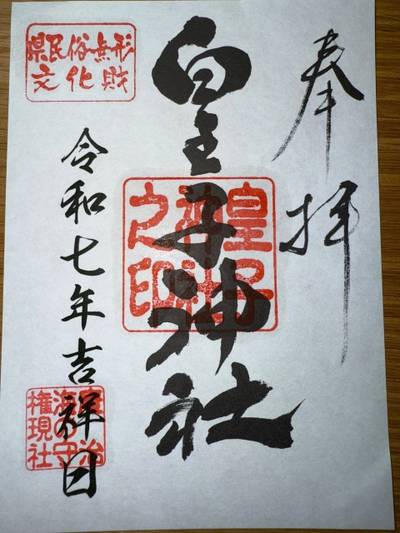 奉拝
皇子神社
皇子神社之印
県民俗無形
文化財
令和七年吉祥日
権現社